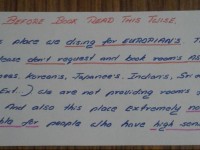 Before Book Read This Twice.
place we doing for EUROPIANS
don't request and book rooms
Koreans, Japanees, Indians, Sri
Ext..) We are not providing rooms
And also this place Extremely no
for people who have high